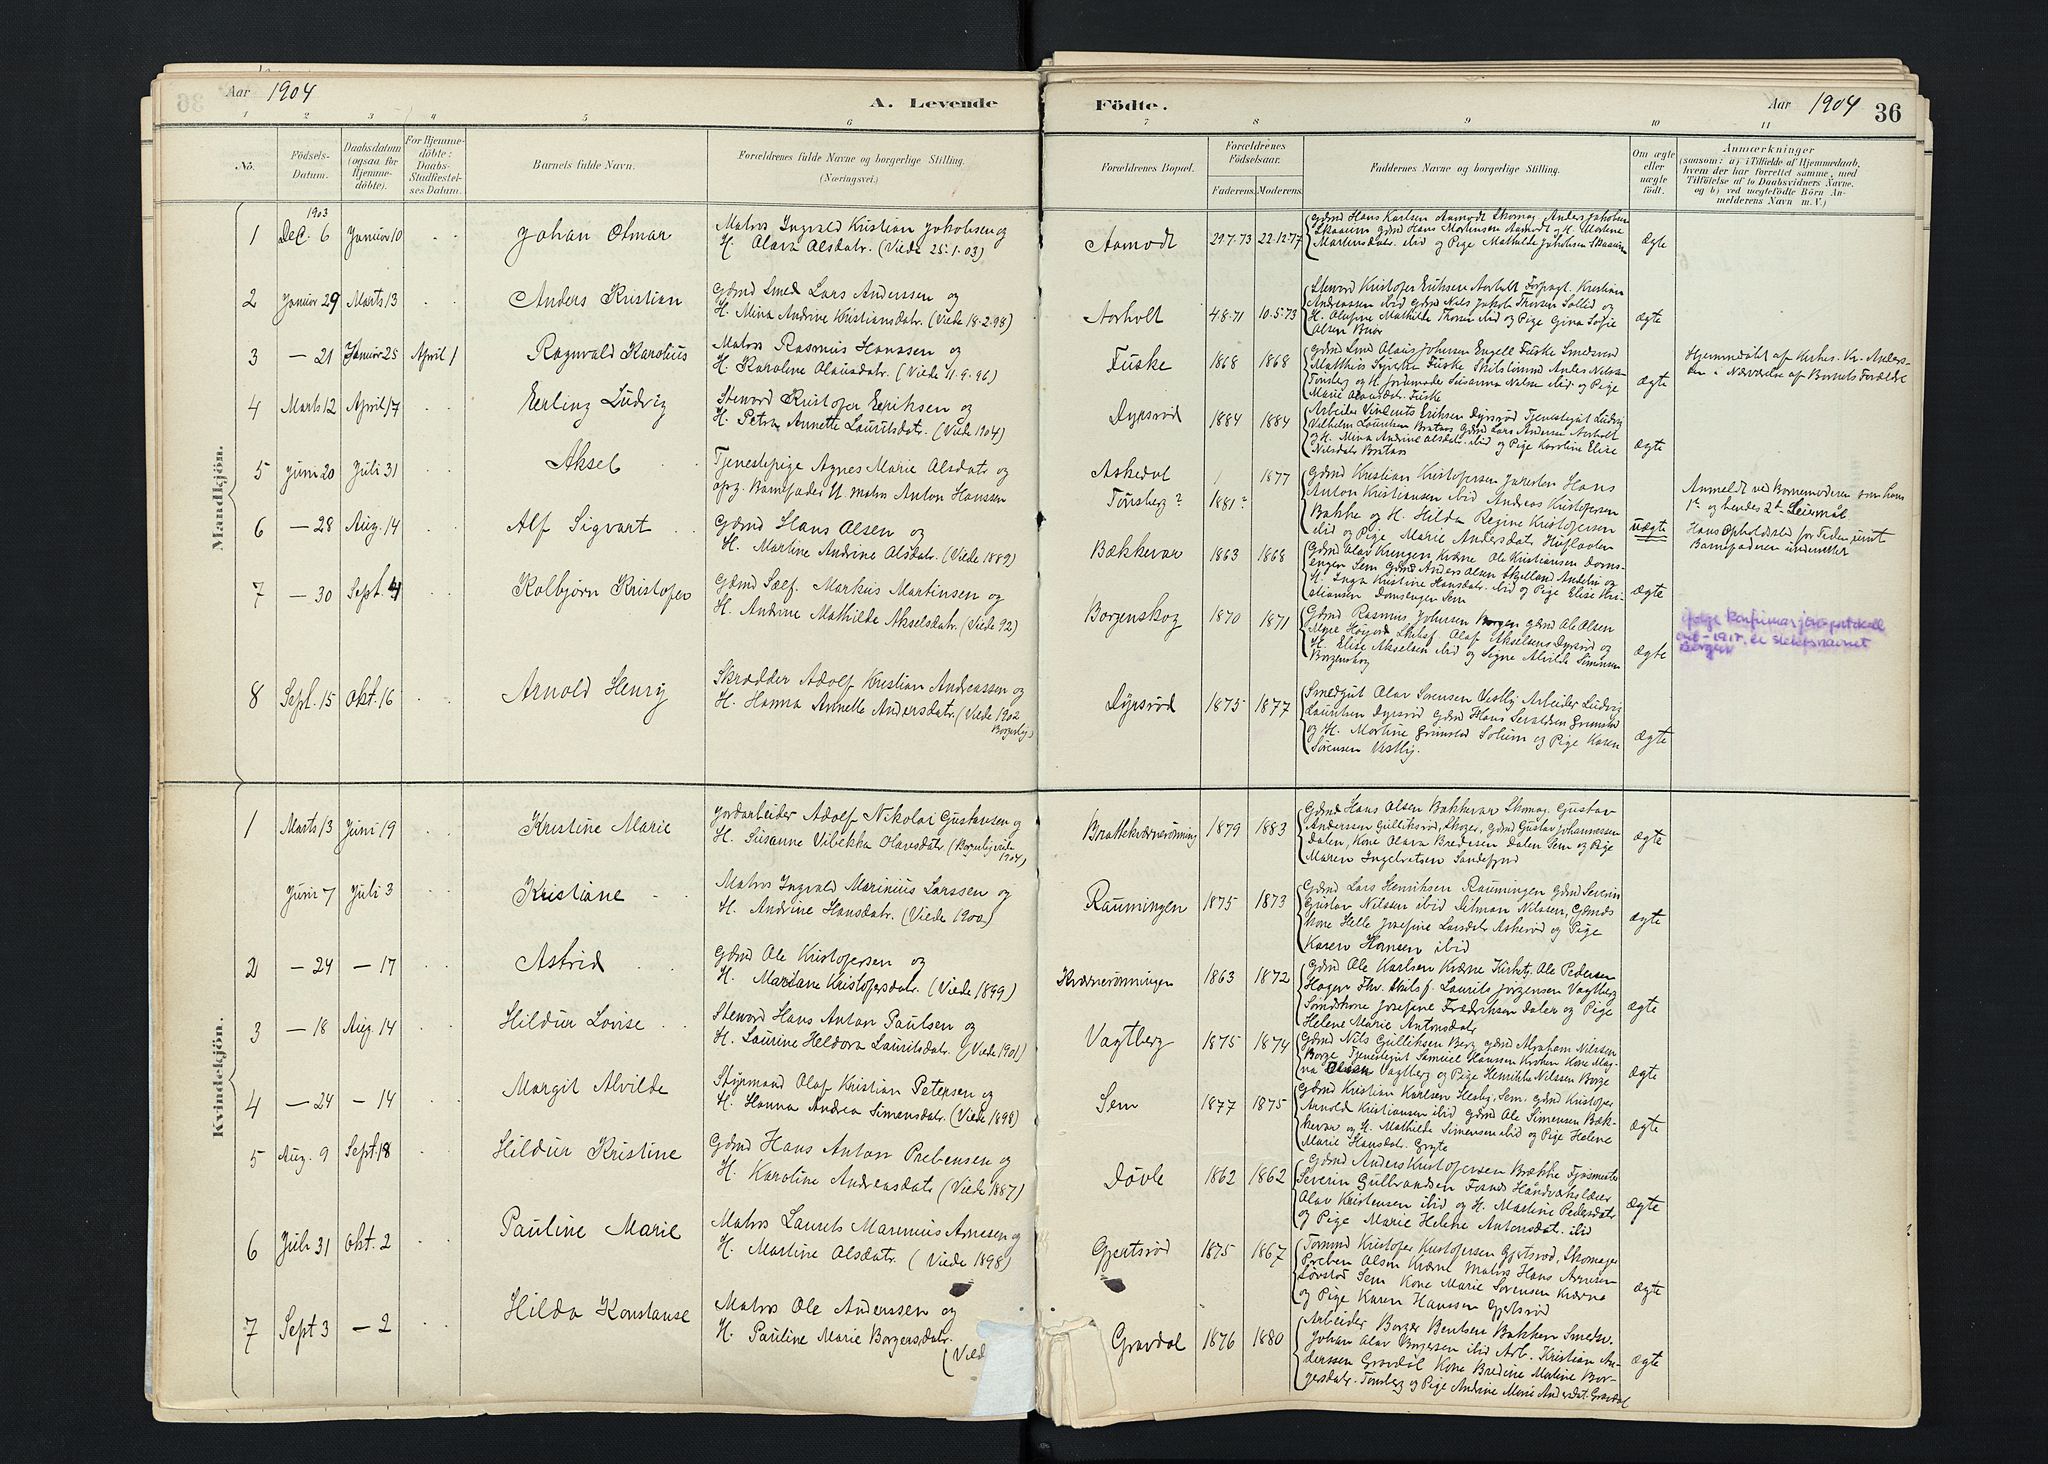 Aar 1904
A. Levende
Födte.
Aar 1904
36
1 2 3 4 5 6 7 8 9 10 11
No.
Födsels-
Datum.
Daabsdatum
(ogsaa for
Hjemme-
döbte).
For Hjemme-
döbte:
Daabs-
Stadfæstel-
ses Datum.
Barnets fulde Navn.
Forældrenes fulde Navne og borgerlige Stilling.
(Næringsvei.)
Forældrenes Bopæl.
Forældrenes
Födselsaar.
Faderens. Moderens.
Faddernes Navne og borgerlige Stilling.
Om ægte
eller
uægte
födt.
Anmærkninger
(saasom: a) i Tilfælde af Hjemmedaab,
hvem der har forrettet samme, med
Tilföielse af to Daabsvidners Navne,
og b) ved uægtefödte Börn An-
melderens Navn m. V.)
Mandkjön.
1903
1 Dec. 6 Januar 10 Johan Otmar
Matros Ingvald Kristian Jakobsen og
H. Olava Olsdatr. (Viede 25-1-03)
Aamodt 29.7.73 22.12.77
Gdmd Hans Karlsen Aamodt Skomag. Anders Jakobsen
Skaaum Gdmd Hans Mortensen Aamodt og H. Martine
Martensdatr. ibid og Pige Mathilde Jakobsen Skaaum
Ægte
2 Januar 29 Marts 13 Anders Kristian
Gdmd Smed Lars Anderssen og
H. Mina Andrine Kristiansdatr. (Viede 18-2-98)
Aarholt 4.8.71 10.5.73
Steword Kristofer Eriksen Aarholt Forpagt. Kristian
Andreassen ibid Gdmd Nils Jakob Thorsen Sollid og
H. Olufine Mathilde Thorsen ibid og Pige Gina Sofie
Olsen Buer
ægte
3 — 21 Januar 25 April 1 Ragnvald Karolius
Matros Rasmus Hanssen og
H. Karoline Olausdatr. (Viede 11-9-96)
Fuske 1868 1868
Marie Olausdatr. Fuske
ægte
Hjemmedöbt af Kirkes. Kr. Anders-
sen i Nærværelse af Barnets Forældre
4 Marts 12 April 17 Erling Ludvig
Steword Kristofer Eriksen og
H. Petra Annette Lauritsdatr. (Viede 1904)
Dyrsröd 1884 1884
Arbeider Vincents Eriksen Dyrsröd Tjenestegut Ludvig
Vilhelm Lauritsen Brataas Gdmd Lars Andersen Aarholt
og H. Mina Andrine Olsdatr. ibid og Pige Karoline Elise
Nilsdatr Brataas
ægte
5 Juni 20 Juli 31 Aksel
Tjenestepige Agnes Marie Olsdatr og
opg. Barnefader U. matros Anton Hanssen
Askedal 1877
Tönsberg? 1881?
Gdmd Kristian Kristofersen Hans
Anton Kristiansen ibid Andreas Kristofersen
Bakke og H. Hilda Regine Kristofersen
ibid og Pige Marie Andersdatr
uægte
Anmeldt ved Barnemoderen som hans
1ste og hendes 2det Leiermål
Hans Opholdssted for Tiden
Barnefaderen
6 — 28 Aug. 14 Alf Sigvart
Gdmd Hans Olsen og
H. Martine Andrine Olsdatr. (Viede 1889)
Bækkevar 1863 1868
ægte
7 — 30 Sept. 4 Kolbjörn Kristofer
Gdmd Sælf. Markus Martinsen og
H. Andrine Mathilde Akselsdatr. (Viede 92)
Borgenskog 1870 1871
Gdmd Rasmus Johnsen Borgen Gdmd Ole Olsen
H. Elise Akselsen ibid og Signe Alvilde Simonsen
Borgenskog
ægte
ifølge konfirmasjonsprotokoll
Borgen
8 Sept. 15 Okt. 16 Arnold Henry
Skrædder Adolf Kristian Andreassen og
H. Hanna Annette Andersdatr. (Viede 1902
Borgerlig)
Dyrsröd 1875 1877
Smedgut Olav Sörensen Vestby Arbeider Ludvig
Lauritsen Dyrsröd Gdmd Hans Grimstad
og H. Martine Grimstad Solum og Pige Karen
Sörensen Vestby.
ægte
Kvindekjön.
1 Marts 13 Juni 19 Kristine Marie
Jordarbeider Adolf Nikolai Gustavsen og
H. Susanne Vibekka Olavsdatr (Borgerligviede
1904)
Brattekværnerönning 1879 1883
Gdmd Hans Olsen Bækkevar Skomag. Gustav
Anderssen Gulliksröd, Skoger, Gdmd Gustav Johannessen
Dalen, Kone Olava Bredesen Dalen Sem og Pige
Maren Ingebretsen Sandefjord
ægte
Juni 7 Juli 3 Kristiane
Matros Ingvald Marinius Larssen og
H. Andrine Hansdatr. (Viede 1900)
Raumingen 1875 1873
Gdmd Lars Henriksen Raumingen Gdmd Severin
Gustav Nilssen ibid Ditman Nilssen, Gdmds
kone Helle Josefine Larsdatr Askeröd og Pige
Karen Hansen ibid
ægte
2 — 24 — 17 Astrid
Gdmd Ole Kristofersen og
H. Mariane Kristofersdatr. (Viede 1899)
Kværnerönningen 1863 1872
Gdmd Ole Karlsen Kværne Kirketj. Ole Pedersen
Hagen Fhv. Skilsf. Laurits Jörgensen Vagtberg
Smedskone Josefine Fredriksen Dalen og Pige
Helene Marie Antonsdatr
ægte
3 — 18 Aug. 14 Hildur Lovise
Steword Hans Anton Paulsen og
H. Laurine Heldora Lauritsdatr. (Viede 1901)
Vagtberg 1875 1874
Gdmd Nils Gulliksen Berg Gdmd Abraham Nilssen
Borge Tjenestegut Samuel Hanssen Kroken Kone Mag-
na Olsen Vagtberg og Pige Henrikke Nilssen Borge
ægte
4 — 24 — 14 Margit Alvilde
Styrmand Olaf Kristian Petersen og
H. Hanna Andrea Simensdatr. (Viede 1898)
Sem 1877 1875
Gdmd Kristian Karlsen Hesby, Sem, Gdmd Kristofer
Arnold Kristiansen ibid Gdmd Ole Simensen Bæk-
kevar og H. Mathilde Simensen ibid og Pige Helene
Marie Hansdatr. Gryte
ægte
5 Aug. 9 Sept. 18 Hildur Kristine
Gdmd Hans Anton Prebensen og
H. Karoline Andreasdatr (Viede 1887)
Dövle 1862 1862
Gdmd Anders Kristofersen Brække Fyrmester
Severin Gulbrandsen Fosnes
Olav Kristensen ibid og H. Martine Pedersdatr
og Pige Marie Helene Antonsdat. ibid
ægte
6 Juli 31 Okt. 2 Pauline Marie
Matros Laurits Marinius Arnesen og
H. Martine Olsdatr. (Viede 1898)
Gjertsröd 1875 1867
Tömmd Kristofer Kristofersen Gjertsröd, Skomager
Preben Olsen Kværne Matros Hans Arnesen
Lövstad Sem Kone Marie Sörensen Kværne
og Pige Karen Hanssen Gjertsröd
ægte
7 Sept 3 — 2 Hilda Konstanse
Matros Ole Anderssen og
H. Pauline Marie Borgersdatr.
(Viede
Gravdal 1876 1880
Arbeider Borger Bentsen Bakken Smedsv.
Johan Olav Borgersen ibid Arb. Kristian An-
derssen Gravdal Kone Bredine Matine Bor-
gersdatr. Tönsberg og Pige Andrine Marie Andersdat. Gravdal
ægte